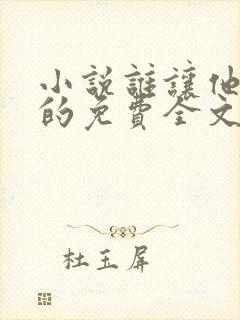 小说谁讓他
的免費全文
杜玉屏